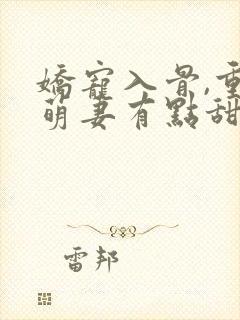 嬌寵入骨,重
萌妻有點甜
雷邦